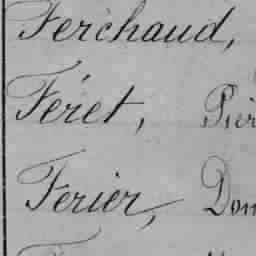 Ferchaud,
Féret, Pier
Ferier, Dom